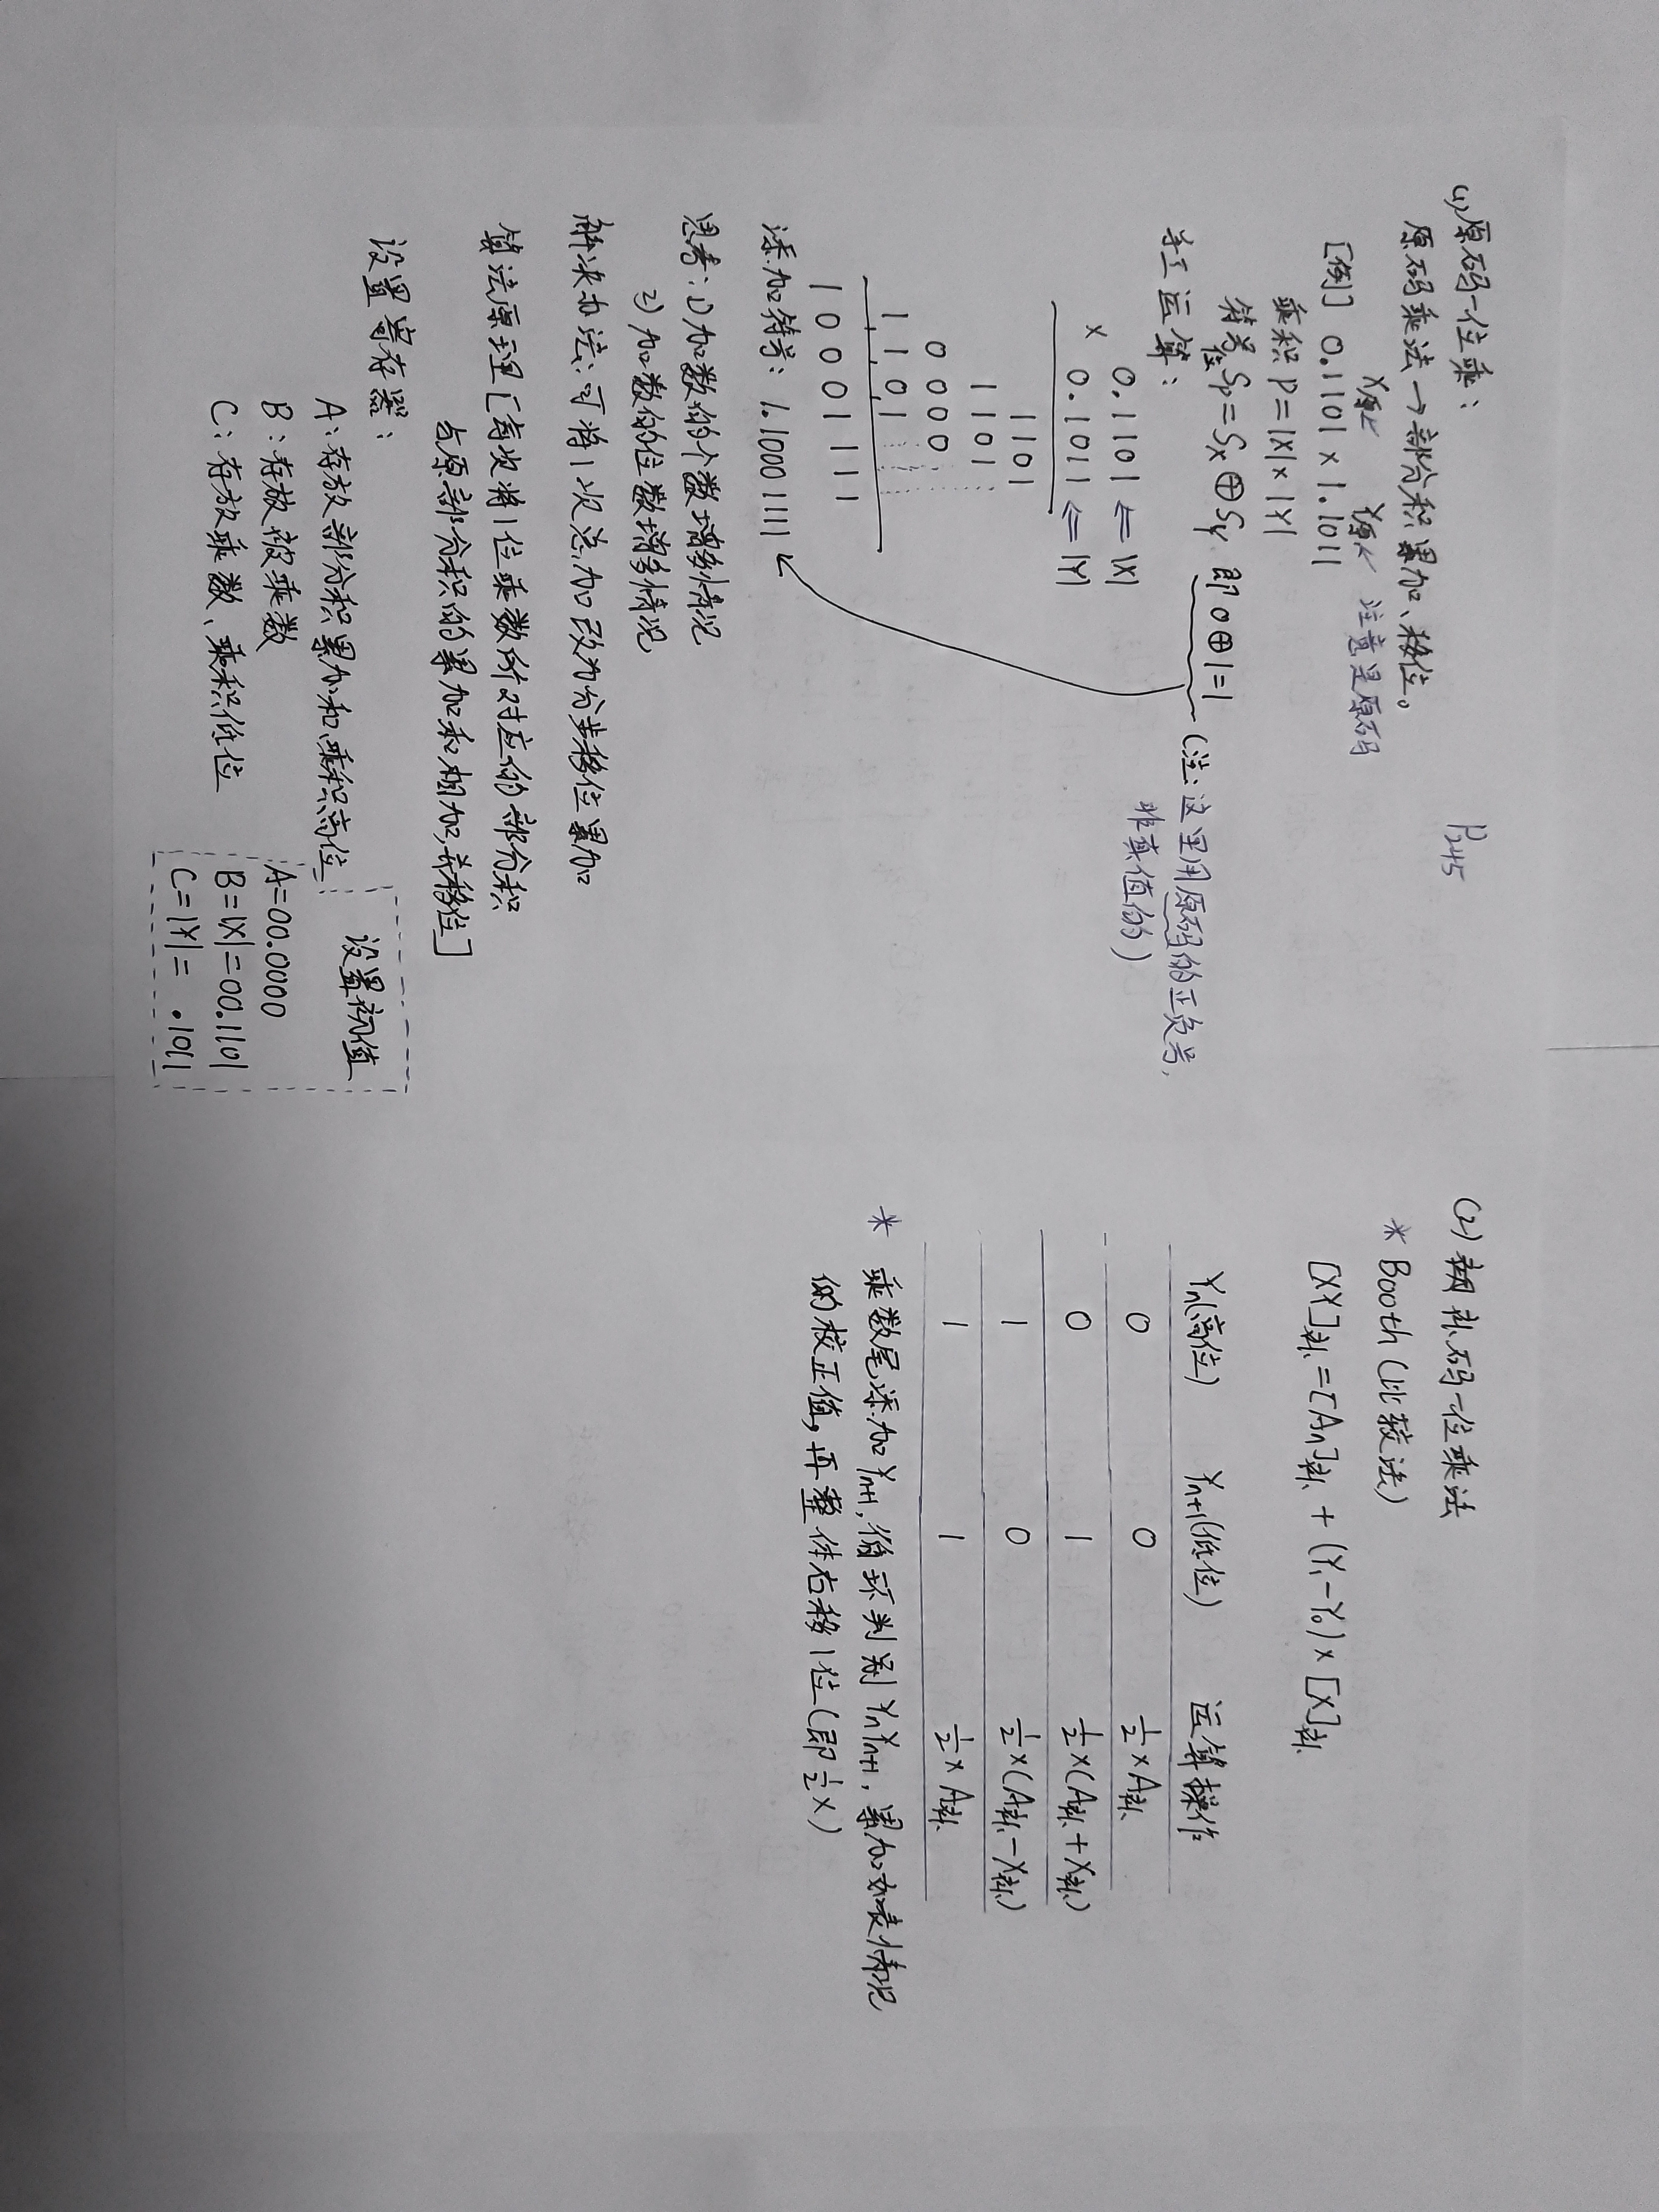 (1)原码一位乘:
P245
原码乘法→部分积累加、移位。
X原↙ Y原↙ 注意是原码
[例] 0.1101 × 1.1011
乘积 P=|X|×|Y|
符号位 Sp=Sx⊕Sy 即 0⊕1=1
(注:这里用原码的正负号,
非真值的)
手工运算:
0.1101 ⇐ |X|
× 0.1011 ⇐ |Y|
1101
1101
0000
1101
10001111
添加符号: 1.10001111
思考: 1) 加数的个数增多情况
2) 加数的位数增多情况
解决办法: 可将1次总加改为分步移位累加
算法原理[每次将1位乘数所对应的部分积
与原部分积的累加和相加,并移位]
设置寄存器:
A:存放部分积累加和、乘积高位
B:存放被乘数
C:存放乘数、乘积低位
设置初值
A=00.0000
B=|X|=00.1101
C=|Y|= .1011
(2) 补码一位乘法
* Booth (比较法)
[XY]补=[An]补+(Y1-Y0)×[X]补
Yn(高位) Yn+1(低位) 运算操作
0 0 ½×A补
0 1 ½×(A补+X补)
1 0 ½×(A补-X补)
1 1 ½×A补
* 乘数尾添加Yn+1,循环判别YnYn+1,累加如表情况
的校正值,再整体右移1位(即½×)